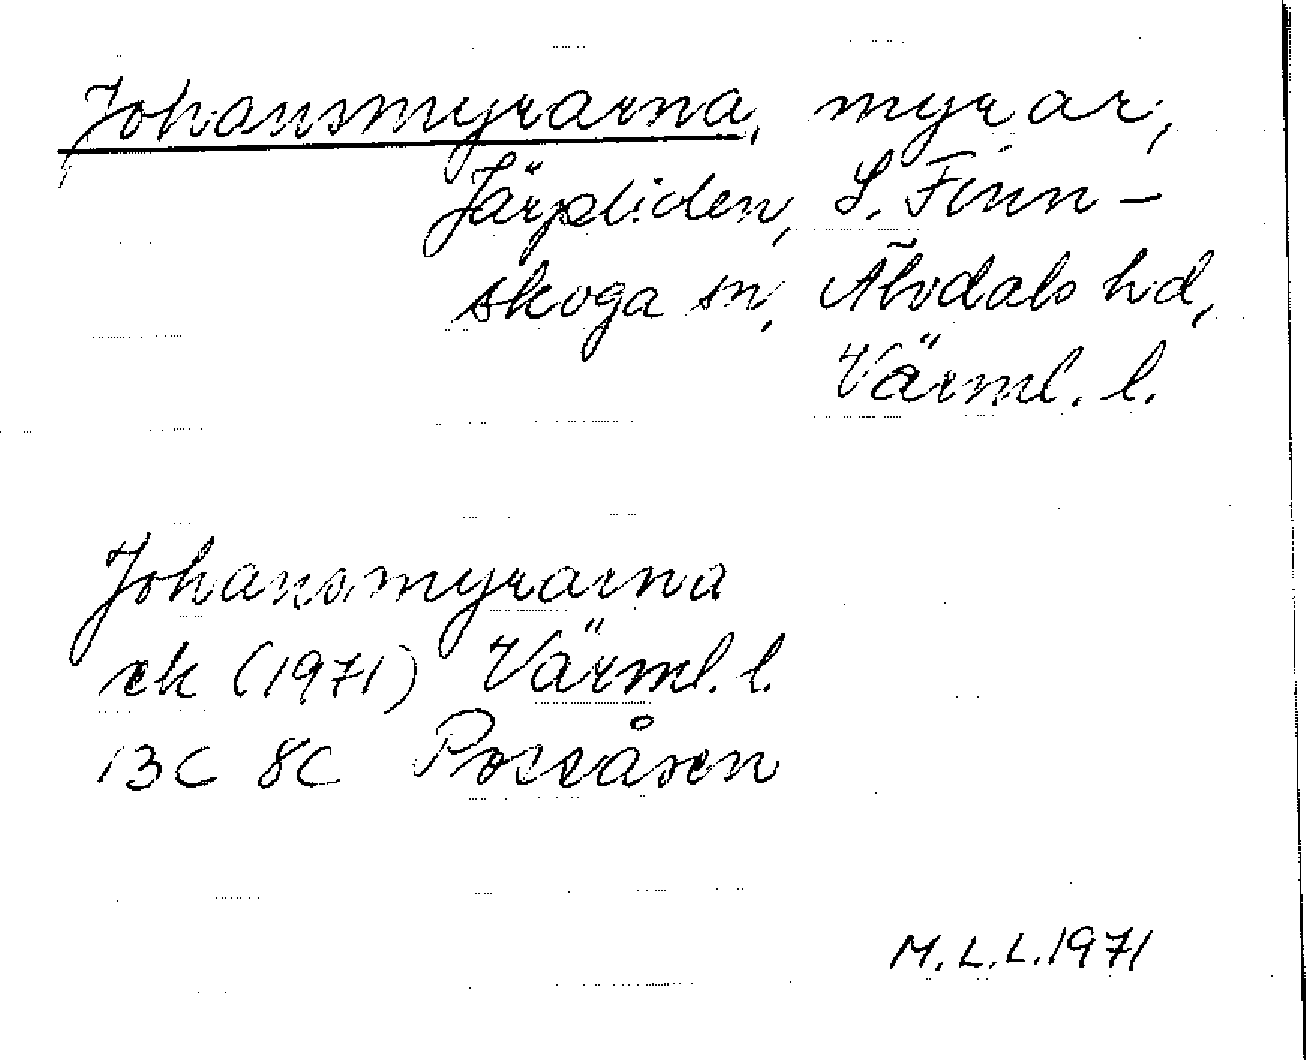 Johansmyrarna, myrar,
Järpliden, S. Finn-
skoga sn, Älvdals hd,
Värml. l.
Johansmyrarna
ek (1971) Värml. l.
13C 8C Possåsen
M.L.L. 1971